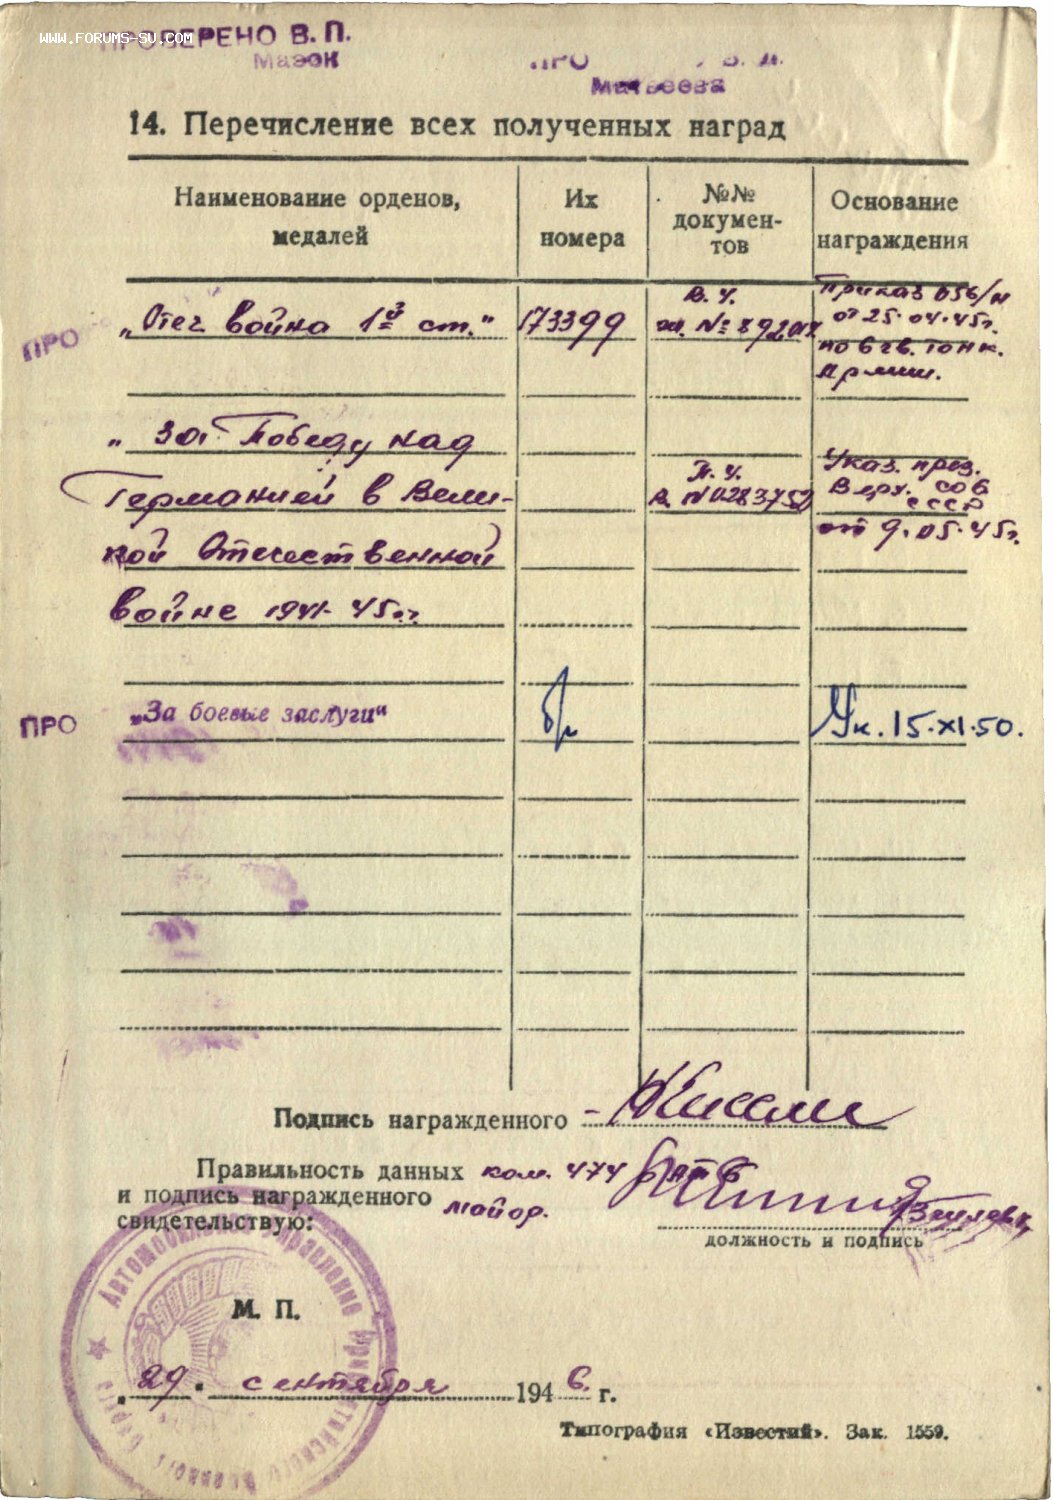 WWW.FORUMS-SU.COM
ПРОВЕРЕНО В. П.
Мазок
ПРО В. Л.
Матвеева
14. Перечисление всех полученных наград
Наименование орденов, медалей
Их номера
№№ докумен-тов
Основание награждения
„Отеч война 1й ст."
173399
В. У.
Приказ 056/н
от 25.04.45г.
по 6 гв. танк.
Армии.
ПРО
„За Победу над
Германией в Вели-
кой Отечественной
войне 1941-45гг
П. У.
Указ. през.
Верх. Сов
СССР
от 9.05.45г.
ПРО
„За боевые заслуги"
б/н
Ук. 15.XI.50.
Подпись награжденного
Правильность данных ком. 474
и подпись награжденного майор.
свидетельствую:
должность и подпись
Автомобильное Управление
М. П.
„29" сентября 1946 г.
Типография «Известий». Зак. 1559.